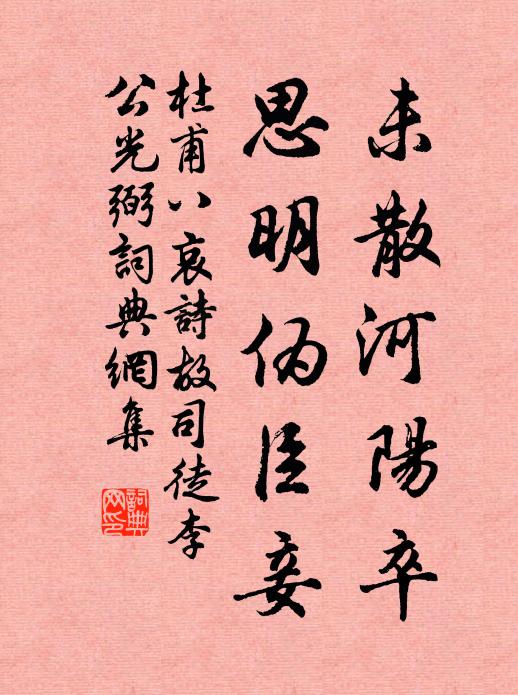 未散河陽卒
思明偽臣妾
杜甫八哀詩故司徒李
公光弼詞典網集
詞典
网印